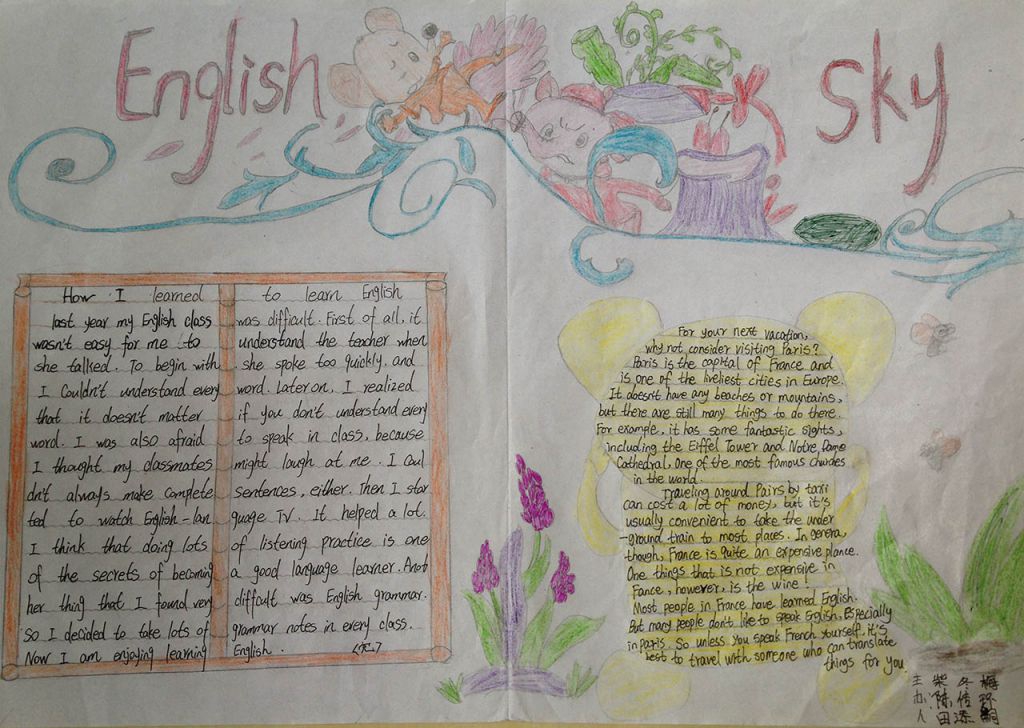 English Sky
How I learned to learn English
last year my English class was difficult. First of all, it
wasn't easy for me to understand the teacher when
she talked. To begin with she spoke too quickly, and
I Couldn't understand every word. Later on, I realized
that it doesn't matter if you don't understand every
word. I was also afraid to speak in class, because
I thought my classmates might laugh at me. I Coul
dn't always make complete sentences, either. Then I star
ted to watch English-lan guage TV. It helped a lot.
I think that doing lots of listening practice is one
of the secrets of becoming a good language learner. Anot
her thing that I found very difficult was English grammar.
So I decided to take lots of grammar notes in every class.
Now I am enjoying learning English. <完>
For your next vacation,
why not consider visiting Paris?
Paris is the capital of France and
is one of the liveliest cities in Europe.
It doesn't have any beaches or mountains,
but there are still many things to do there.
For example, it has some fantastic sights,
including the Eiffel Tower and Notre Dame
Cathedral, one of the most famous churches
in the world.
Traveling around Pairs by taxi
can cost a lot of money, but it's
usually convenient to take the under
-ground train to most places. In genera,
though, France is quite an expensive plance.
One things that is not expensive in
Fance, however, is the wine!
Most people in France have learned English.
But many people don't like to speak English, Especially
in Paris. So unless you speak French yourself, it's
best to travel with someone who can translate
things for you.
主 柴 冬 梅
办 陈
人 田 添